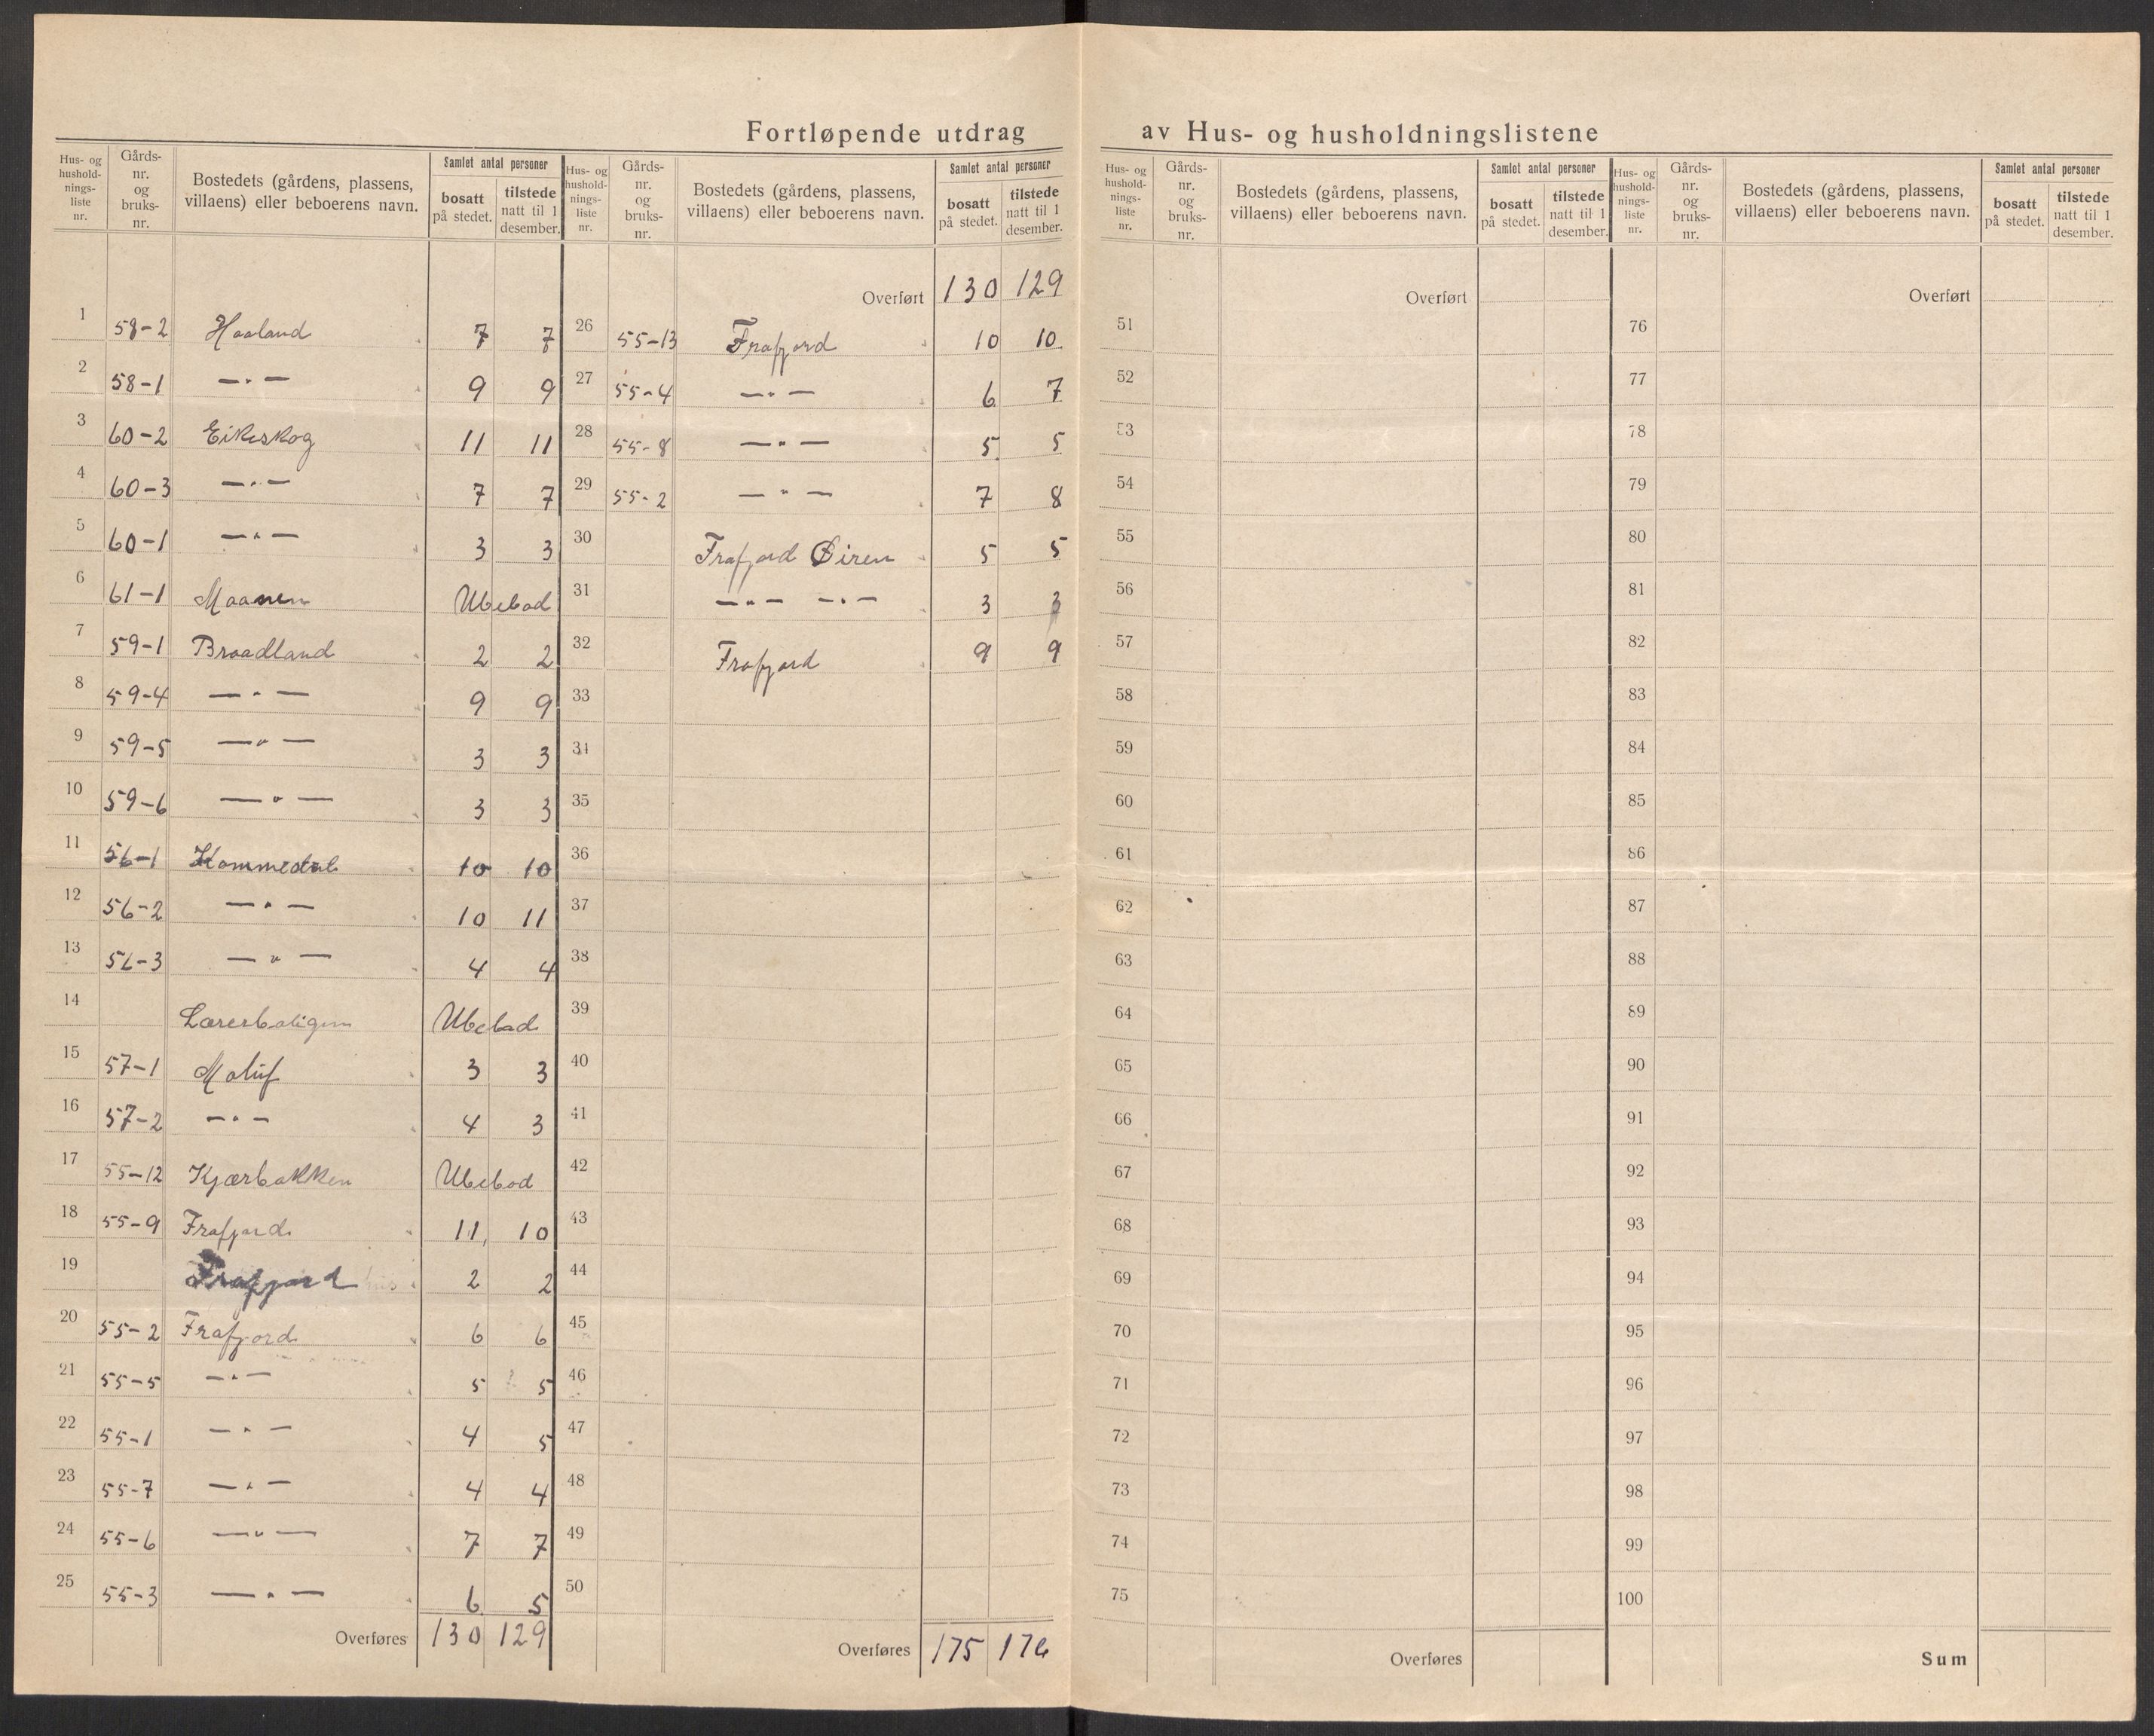 Fortløpende utdrag av Hus- og husholdningslistene
Hus- og hushold-nings-liste nr. Gårds-nr. og bruks-nr. Bostedets (gårdens, plassens, villaens) eller beboerens navn. Samlet antal personer bosatt på stedet. tilstede natt til 1 desember.
1 58-2 Haaland 7 7
2 58-1 —"— 9 9
3 60-2 Eikeskog 11 11
4 60-3 —"— 7 7
5 60-1 —"— 3 3
6 61-1 Maanen Ubebod
7 59-1 Braadland 2 2
8 59-4 —"— 9 9
9 59-5 —"— 3 3
10 59-6 —"— 3 3
11 56-1 Kommedal 10 10
12 56-2 —"— 10 11
13 56-3 —"— 4 4
14 Lærerboligen Ubebod
15 57-1 Molaug 3 3
16 57-2 —"— 4 3
17 55-12 Kjærbakken Ubebod
18 55-9 Frafjord 11 10
19 Frafjord 2 2
20 55-2 Frafjord 6 6
21 55-5 —"— 5 5
22 55-1 —"— 4 5
23 55-7 —"— 4 4
24 55-6 —"— 7 7
25 55-3 —"— 6 5
Overføres 130 129
Hus- og hushold-nings-liste nr. Gårds-nr. og bruks-nr. Bostedets (gårdens, plassens, villaens) eller beboerens navn. Samlet antal personer bosatt på stedet. tilstede natt til 1 desember.
Overført 130 129
26 55-13 Frafjord 10 10
27 55-4 —"— 6 7
28 55-8 —"— 5 5
29 55-2 —"— 7 8
30 Frafjord Øiren 5 5
31 —"— —"— 3 3
32 Frafjord 9 9
33
34
35
36
37
38
39
40
41
42
43
44
45
46
47
48
49
50
Overføres 175 176
Hus- og hushold-nings-liste nr. Gårds-nr. og bruks-nr. Bostedets (gårdens, plassens, villaens) eller beboerens navn. Samlet antal personer bosatt på stedet. tilstede natt til 1 desember.
Overført
51
52
53
54
55
56
57
58
59
60
61
62
63
64
65
66
67
68
69
70
71
72
73
74
75
Overføres
Hus- og hushold-nings-liste nr. Gårds-nr. og bruks-nr. Bostedets (gårdens, plassens, villaens) eller beboerens navn. Samlet antal personer bosatt på stedet. tilstede natt til 1 desember.
Overført
76
77
78
79
80
81
82
83
84
85
86
87
88
89
90
91
92
93
94
95
96
97
98
99
100
Sum